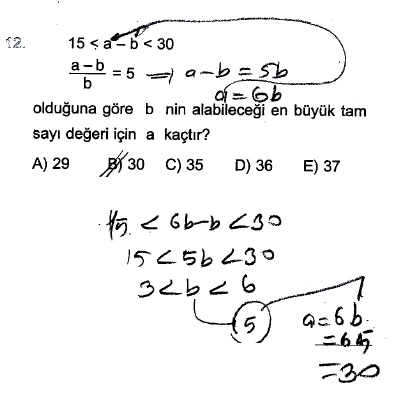 12. 15 < a – b < 30
(a – b)/b = 5 ⟹ a – b = 5b
a = 6b
olduğuna göre b nin alabileceği en büyük tam
sayı değeri için a kaçtır?
A) 29 B) 30 C) 35 D) 36 E) 37
15 < 6b – b < 30
15 < 5b < 30
3 < b < 6
5
a = 6b
= 6·5
= 30